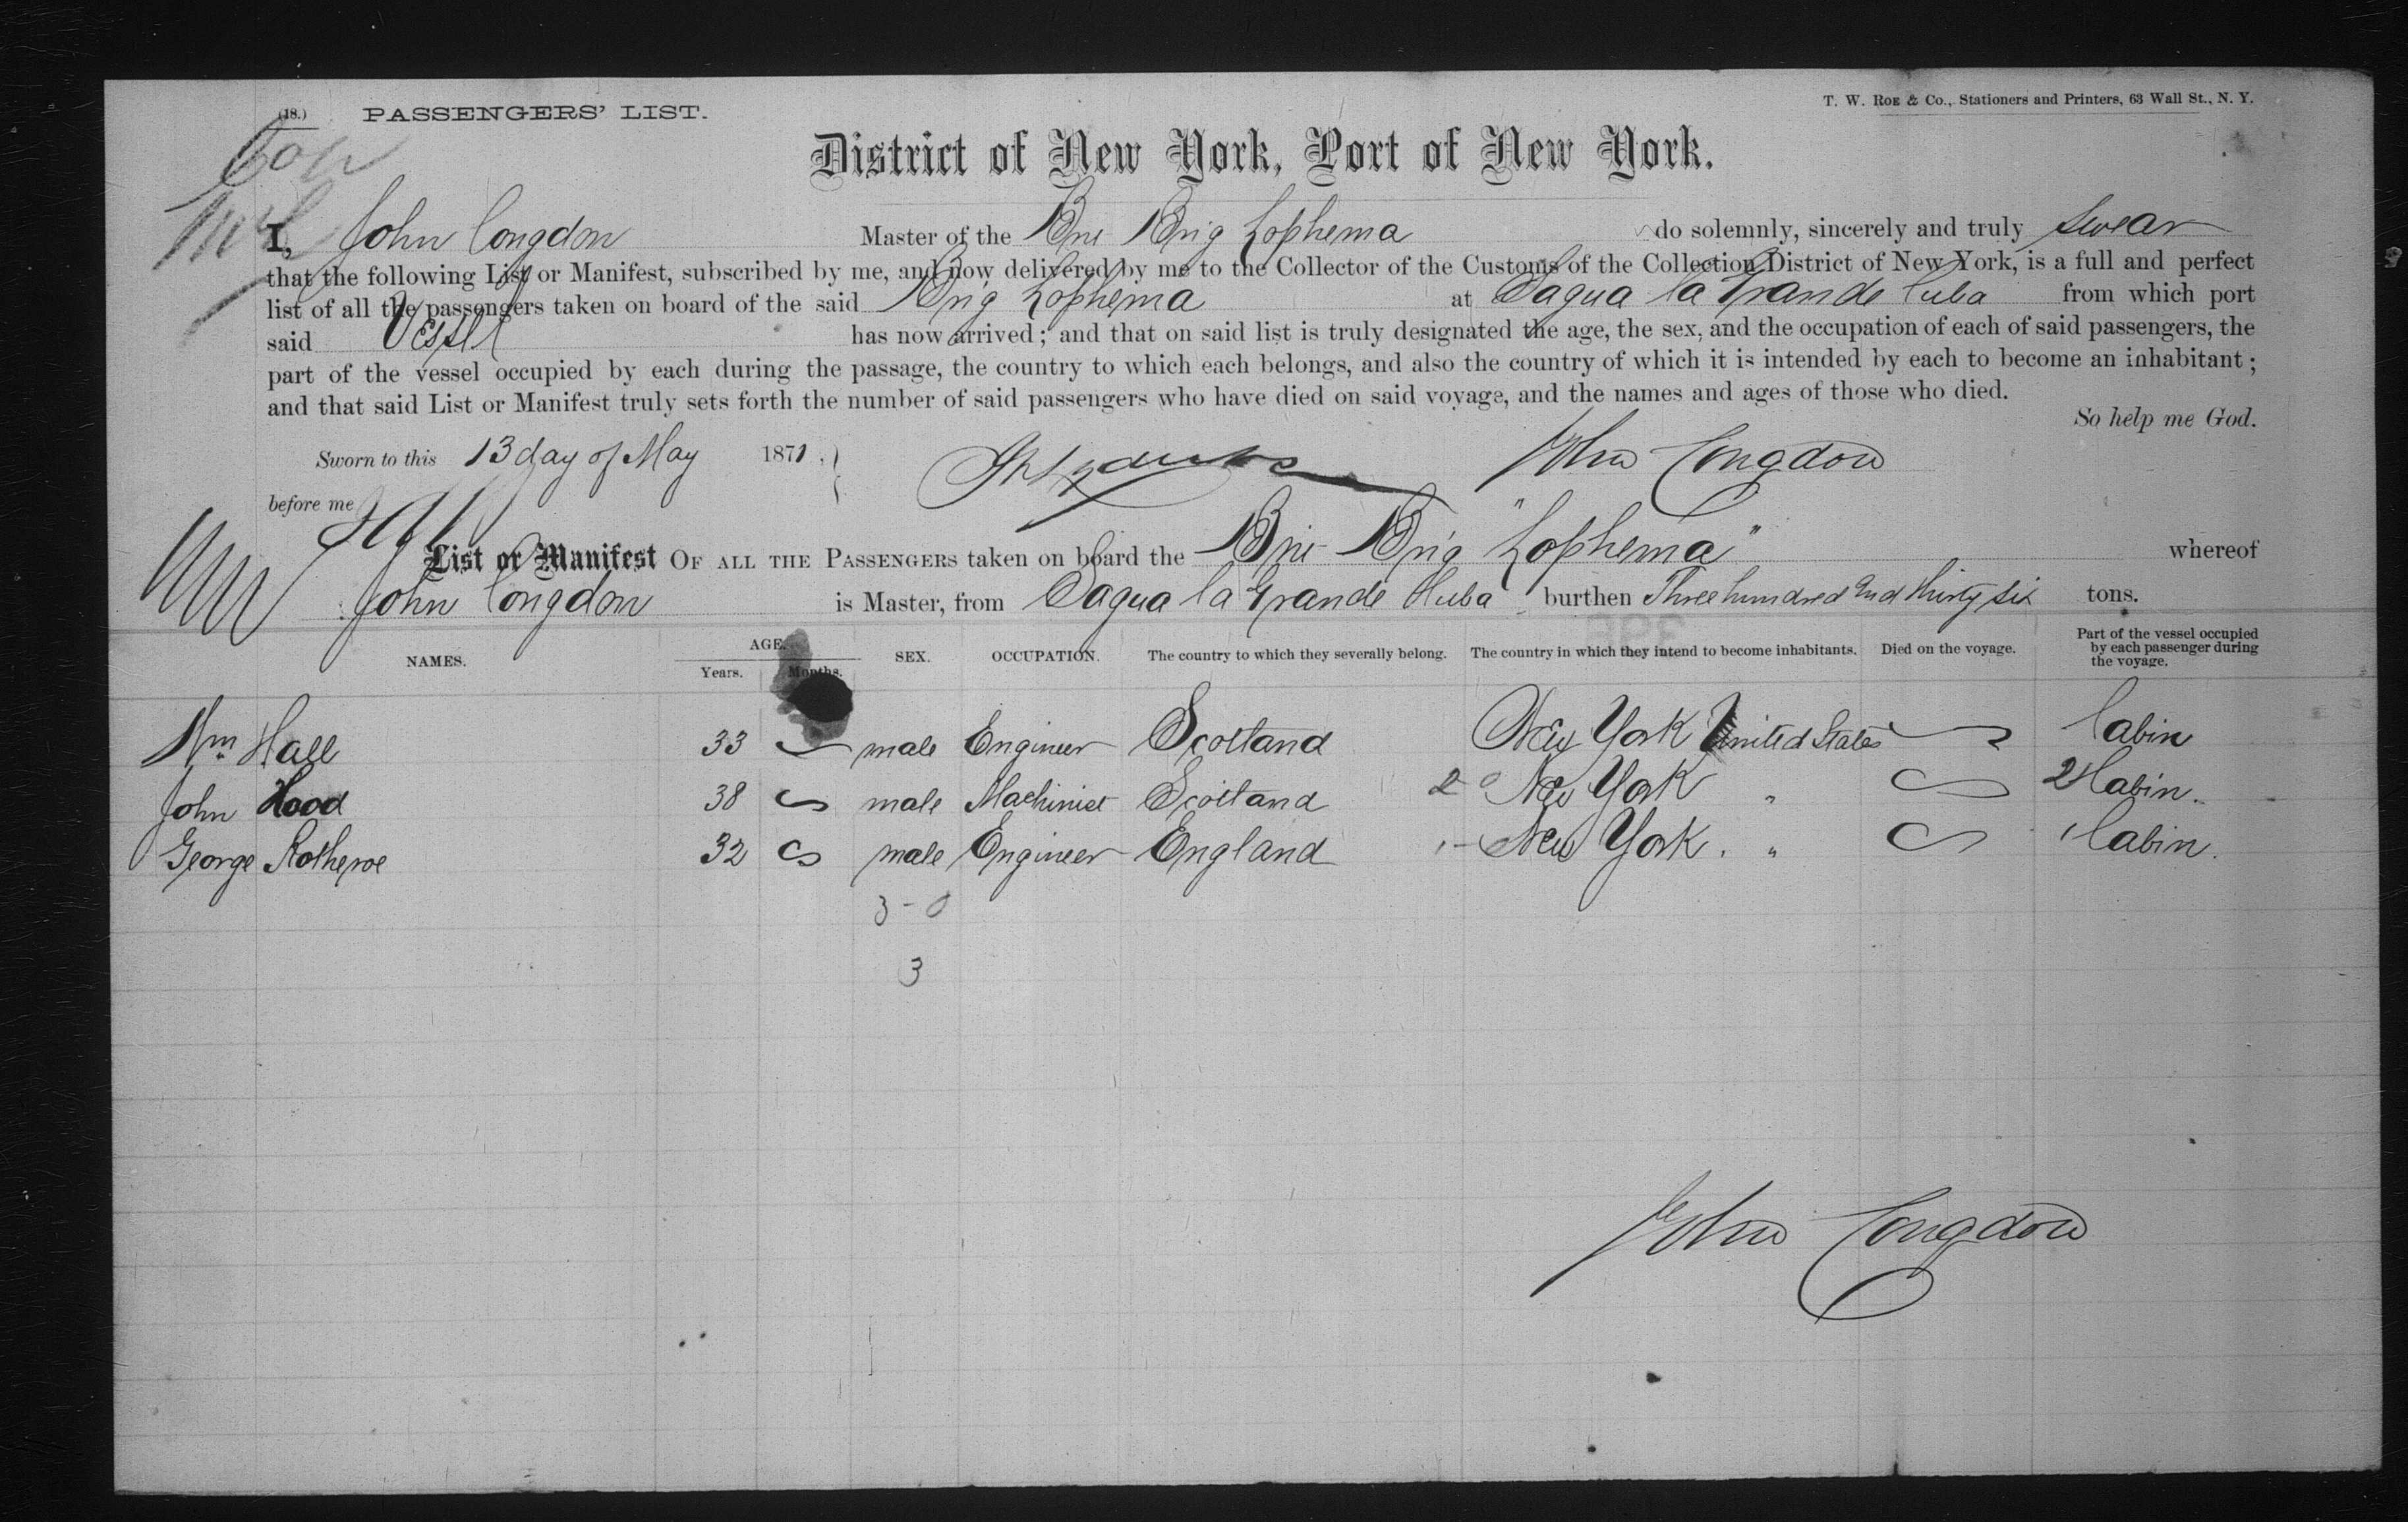 (18.) PASSENGERS' LIST.
T. W. ROE & Co., Stationers and Printers, 63 Wall St., N. Y.
District of New York, Port of New York.
I, John Congdon Master of the Bri Brig Zophema do solemnly, sincerely and truly swear
that the following List or Manifest, subscribed by me, and now delivered by me to the Collector of the Customs of the Collection District of New York, is a full and perfect
list of all the passengers taken on board of the said Brig Zophema at Sagua la Grande Cuba from which port
said Vessel has now arrived; and that on said list is truly designated the age, the sex, and the occupation of each of said passengers, the
part of the vessel occupied by each during the passage, the country to which each belongs, and also the country of which it is intended by each to become an inhabitant;
and that said List or Manifest truly sets forth the number of said passengers who have died on said voyage, and the names and ages of those who died.
So help me God.
Sworn to this 13 day of May 1871. John Congdon
before me
List or Manifest OF ALL THE PASSENGERS taken on board the Bri Brig "Zophema" whereof
John Congdon is Master, from Sagua la Grande Cuba burthen Three hundred and thirty six tons.
NAMES. AGE. Years. Months. SEX. OCCUPATION. The country to which they severally belong. The country in which they intend to become inhabitants. Died on the voyage. Part of the vessel occupied by each passenger during the voyage.
Wm Hall 33 male Engineer Scotland New York United States Cabin
John Hood 38 male Machinist Scotland New York " Cabin.
George Rotheroe 32 male Engineer England New York. " Cabin.
3-0
3
John Congdon